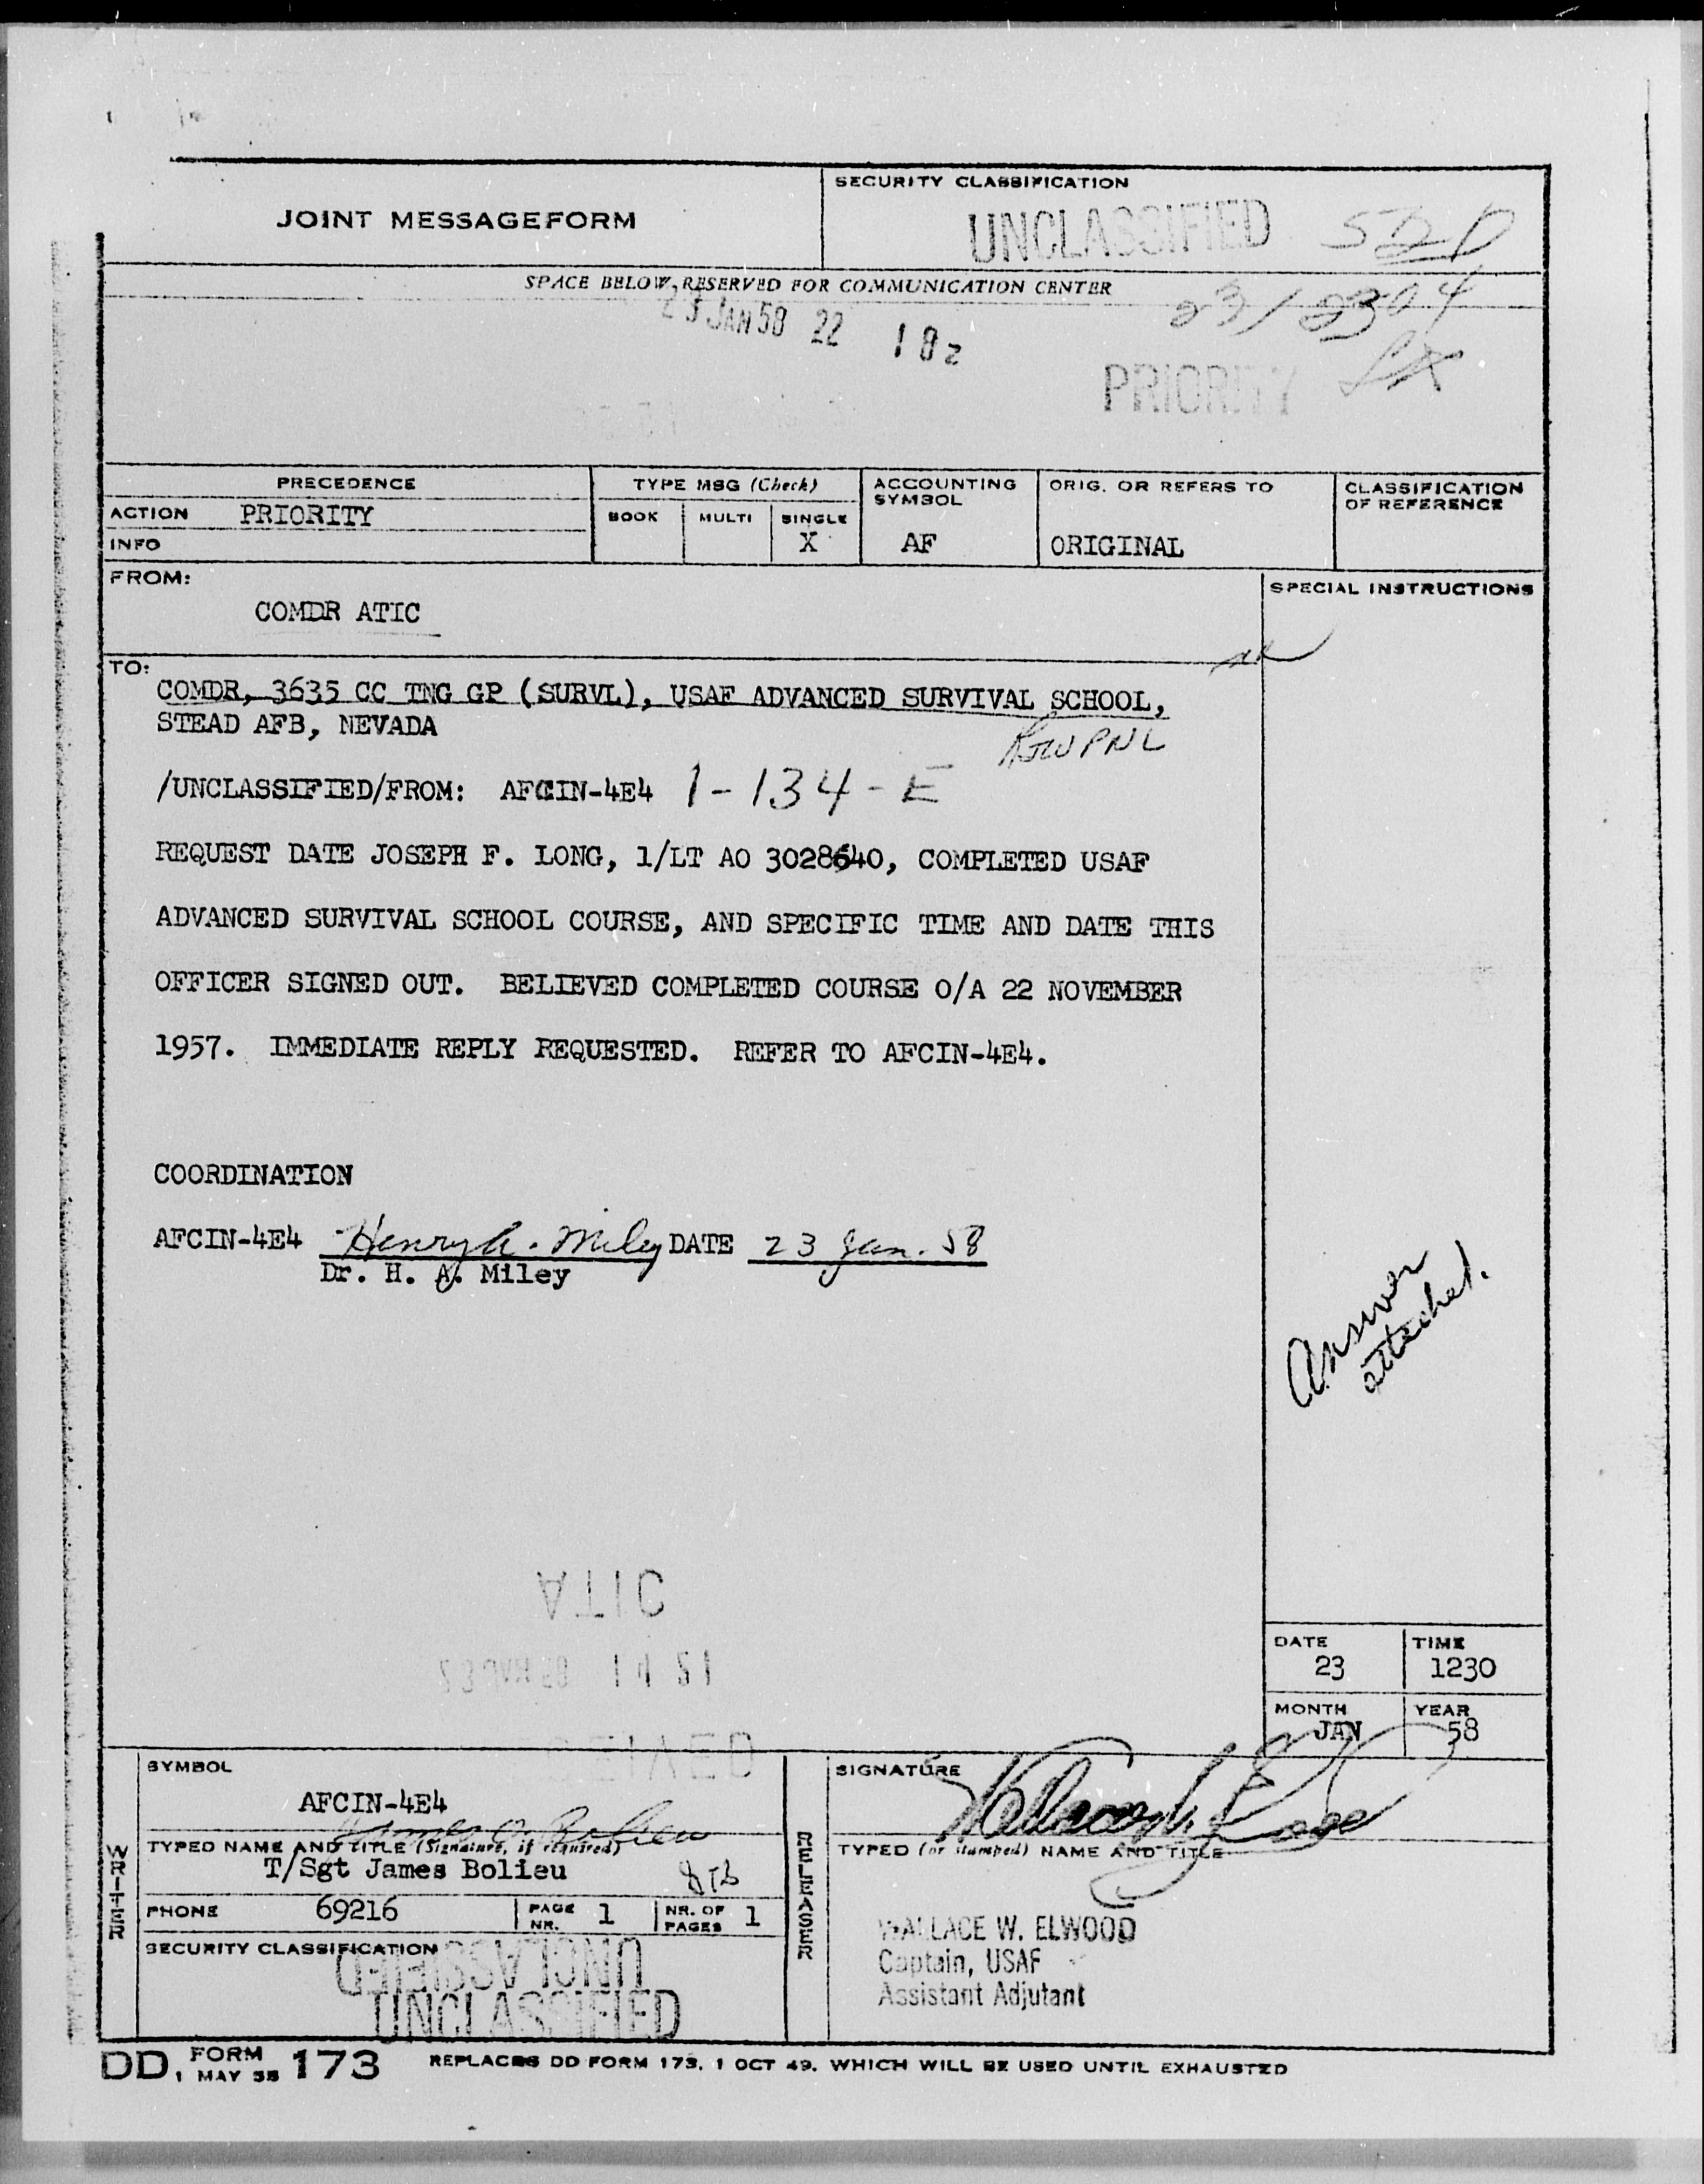 JOINT MESSAGEFORM
SECURITY CLASSIFICATION
UNCLASSIFIED
SPACE BELOW RESERVED FOR COMMUNICATION CENTER
23 JAN 58 22 18z
23/2304
PRIORITY
PRECEDENCE
TYPE MSG (Check)
ACCOUNTING SYMBOL
ORIG. OR REFERS TO
CLASSIFICATION OF REFERENCE
ACTION PRIORITY
BOOK MULTI SINGLE
INFO
X
AF
ORIGINAL
FROM:
COMDR ATIC
SPECIAL INSTRUCTIONS
TO:
COMDR, 3635 CC TNG GP (SURVL), USAF ADVANCED SURVIVAL SCHOOL,
STEAD AFB, NEVADA
/UNCLASSIFIED/FROM: AFCIN-4E4 1-134-E
REQUEST DATE JOSEPH F. LONG, 1/LT AO 3028640, COMPLETED USAF
ADVANCED SURVIVAL SCHOOL COURSE, AND SPECIFIC TIME AND DATE THIS
OFFICER SIGNED OUT. BELIEVED COMPLETED COURSE O/A 22 NOVEMBER
1957. IMMEDIATE REPLY REQUESTED. REFER TO AFCIN-4E4.
COORDINATION
AFCIN-4E4 Henry A. Miley DATE 23 Jan. 58
Dr. H. A. Miley
Answer
attached.
ATIC
DATE
23
TIME
1230
MONTH
JAN
YEAR
58
SYMBOL
AFCIN-4E4
SIGNATURE
WRITER
TYPED NAME AND TITLE (Signature, if required)
T/Sgt James Bolieu
RELEASER
TYPED (or stamped) NAME AND TITLE
PHONE 69216
PAGE NR. 1
NR. OF PAGES 1
WALLACE W. ELWOOD
Captain, USAF
Assistant Adjutant
SECURITY CLASSIFICATION
UNCLASSIFIED
UNCLASSIFIED
DD, FORM 1 MAY 55 173 REPLACES DD FORM 173, 1 OCT 49, WHICH WILL BE USED UNTIL EXHAUSTED